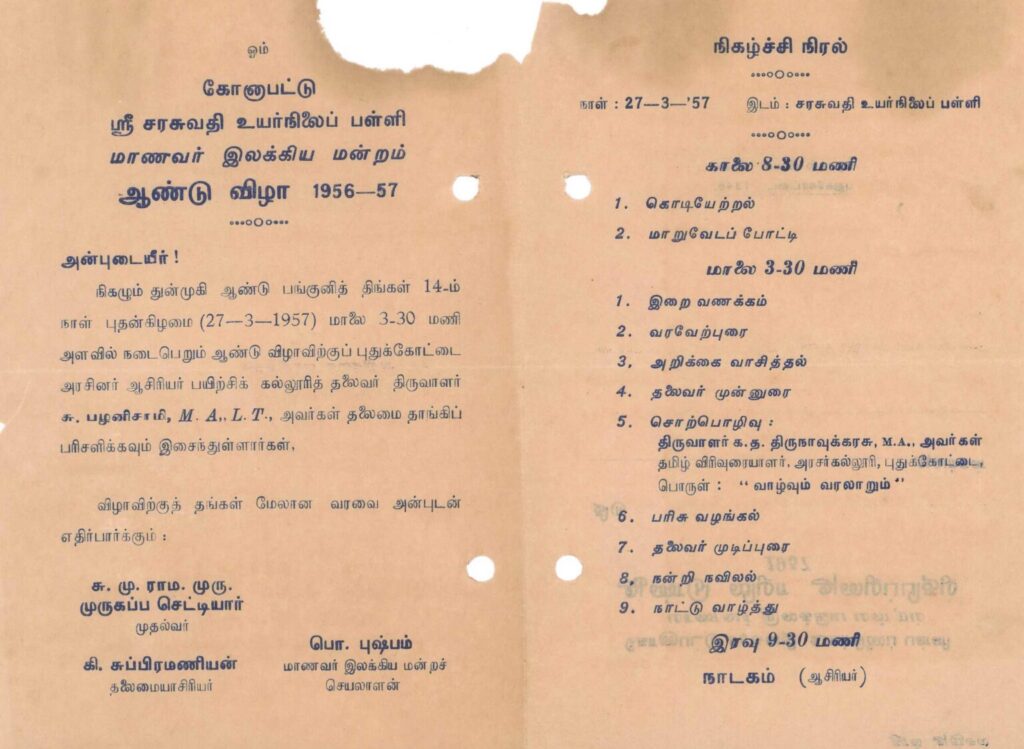 ஓம்
கோனாபட்டு
ஸ்ரீ சரசுவதி உயர்நிலைப் பள்ளி
மாணவர் இலக்கிய மன்றம்
ஆண்டு விழா 1956—57
அன்புடையீர் !
நிகழும் துன்முகி ஆண்டு பங்குனித் திங்கள் 14-ம்
நாள் புதன்கிழமை (27—3—1957) மாலை 3-30 மணி
அளவில் நடைபெறும் ஆண்டு விழாவிற்குப் புதுக்கோட்டை
அரசினர் ஆசிரியர் பயிற்சிக் கல்லூரித் தலைவர் திருவாளர்
சு. பழனிசாமி, M. A., L. T., அவர்கள் தலைமை தாங்கிப்
பரிசளிக்கவும் இசைந்துள்ளார்கள்.
விழாவிற்குத் தங்கள் மேலான வரவை அன்புடன்
எதிர்பார்க்கும் :
சு. மு. ராம. முரு.
முருகப்ப செட்டியார்
முதல்வர்
கி. சுப்பிரமணியன்
தலைமையாசிரியர்
பொ. புஷ்பம்
மாணவர் இலக்கிய மன்றச்
செயலாளன்
நிகழ்ச்சி நிரல்
நாள் : 27—3—'57 இடம் : சரசுவதி உயர்நிலைப் பள்ளி
காலை 8-30 மணி
1. கொடியேற்றல்
2. மாறுவேடப் போட்டி
மாலை 3-30 மணி
1. இறை வணக்கம்
2. வரவேற்புரை
3, அறிக்கை வாசித்தல்
4. தலைவர் முன்னுரை
5. சொற்பொழிவு :
திருவாளர் க. த. திருநாவுக்கரசு, M.A., அவர்கள்
தமிழ் விரிவுரையாளர், அரசர்கல்லூரி, புதுக்கோட்டை.
பொருள் : “ வாழ்வும் வரலாறும் ”
6. பரிசு வழங்கல்
7. தலைவர் முடிப்புரை
8, நன்றி நவிலல்
9. நாட்டு வாழ்த்து
இரவு 9-30 மணி
நாடகம் (ஆசிரியர்)